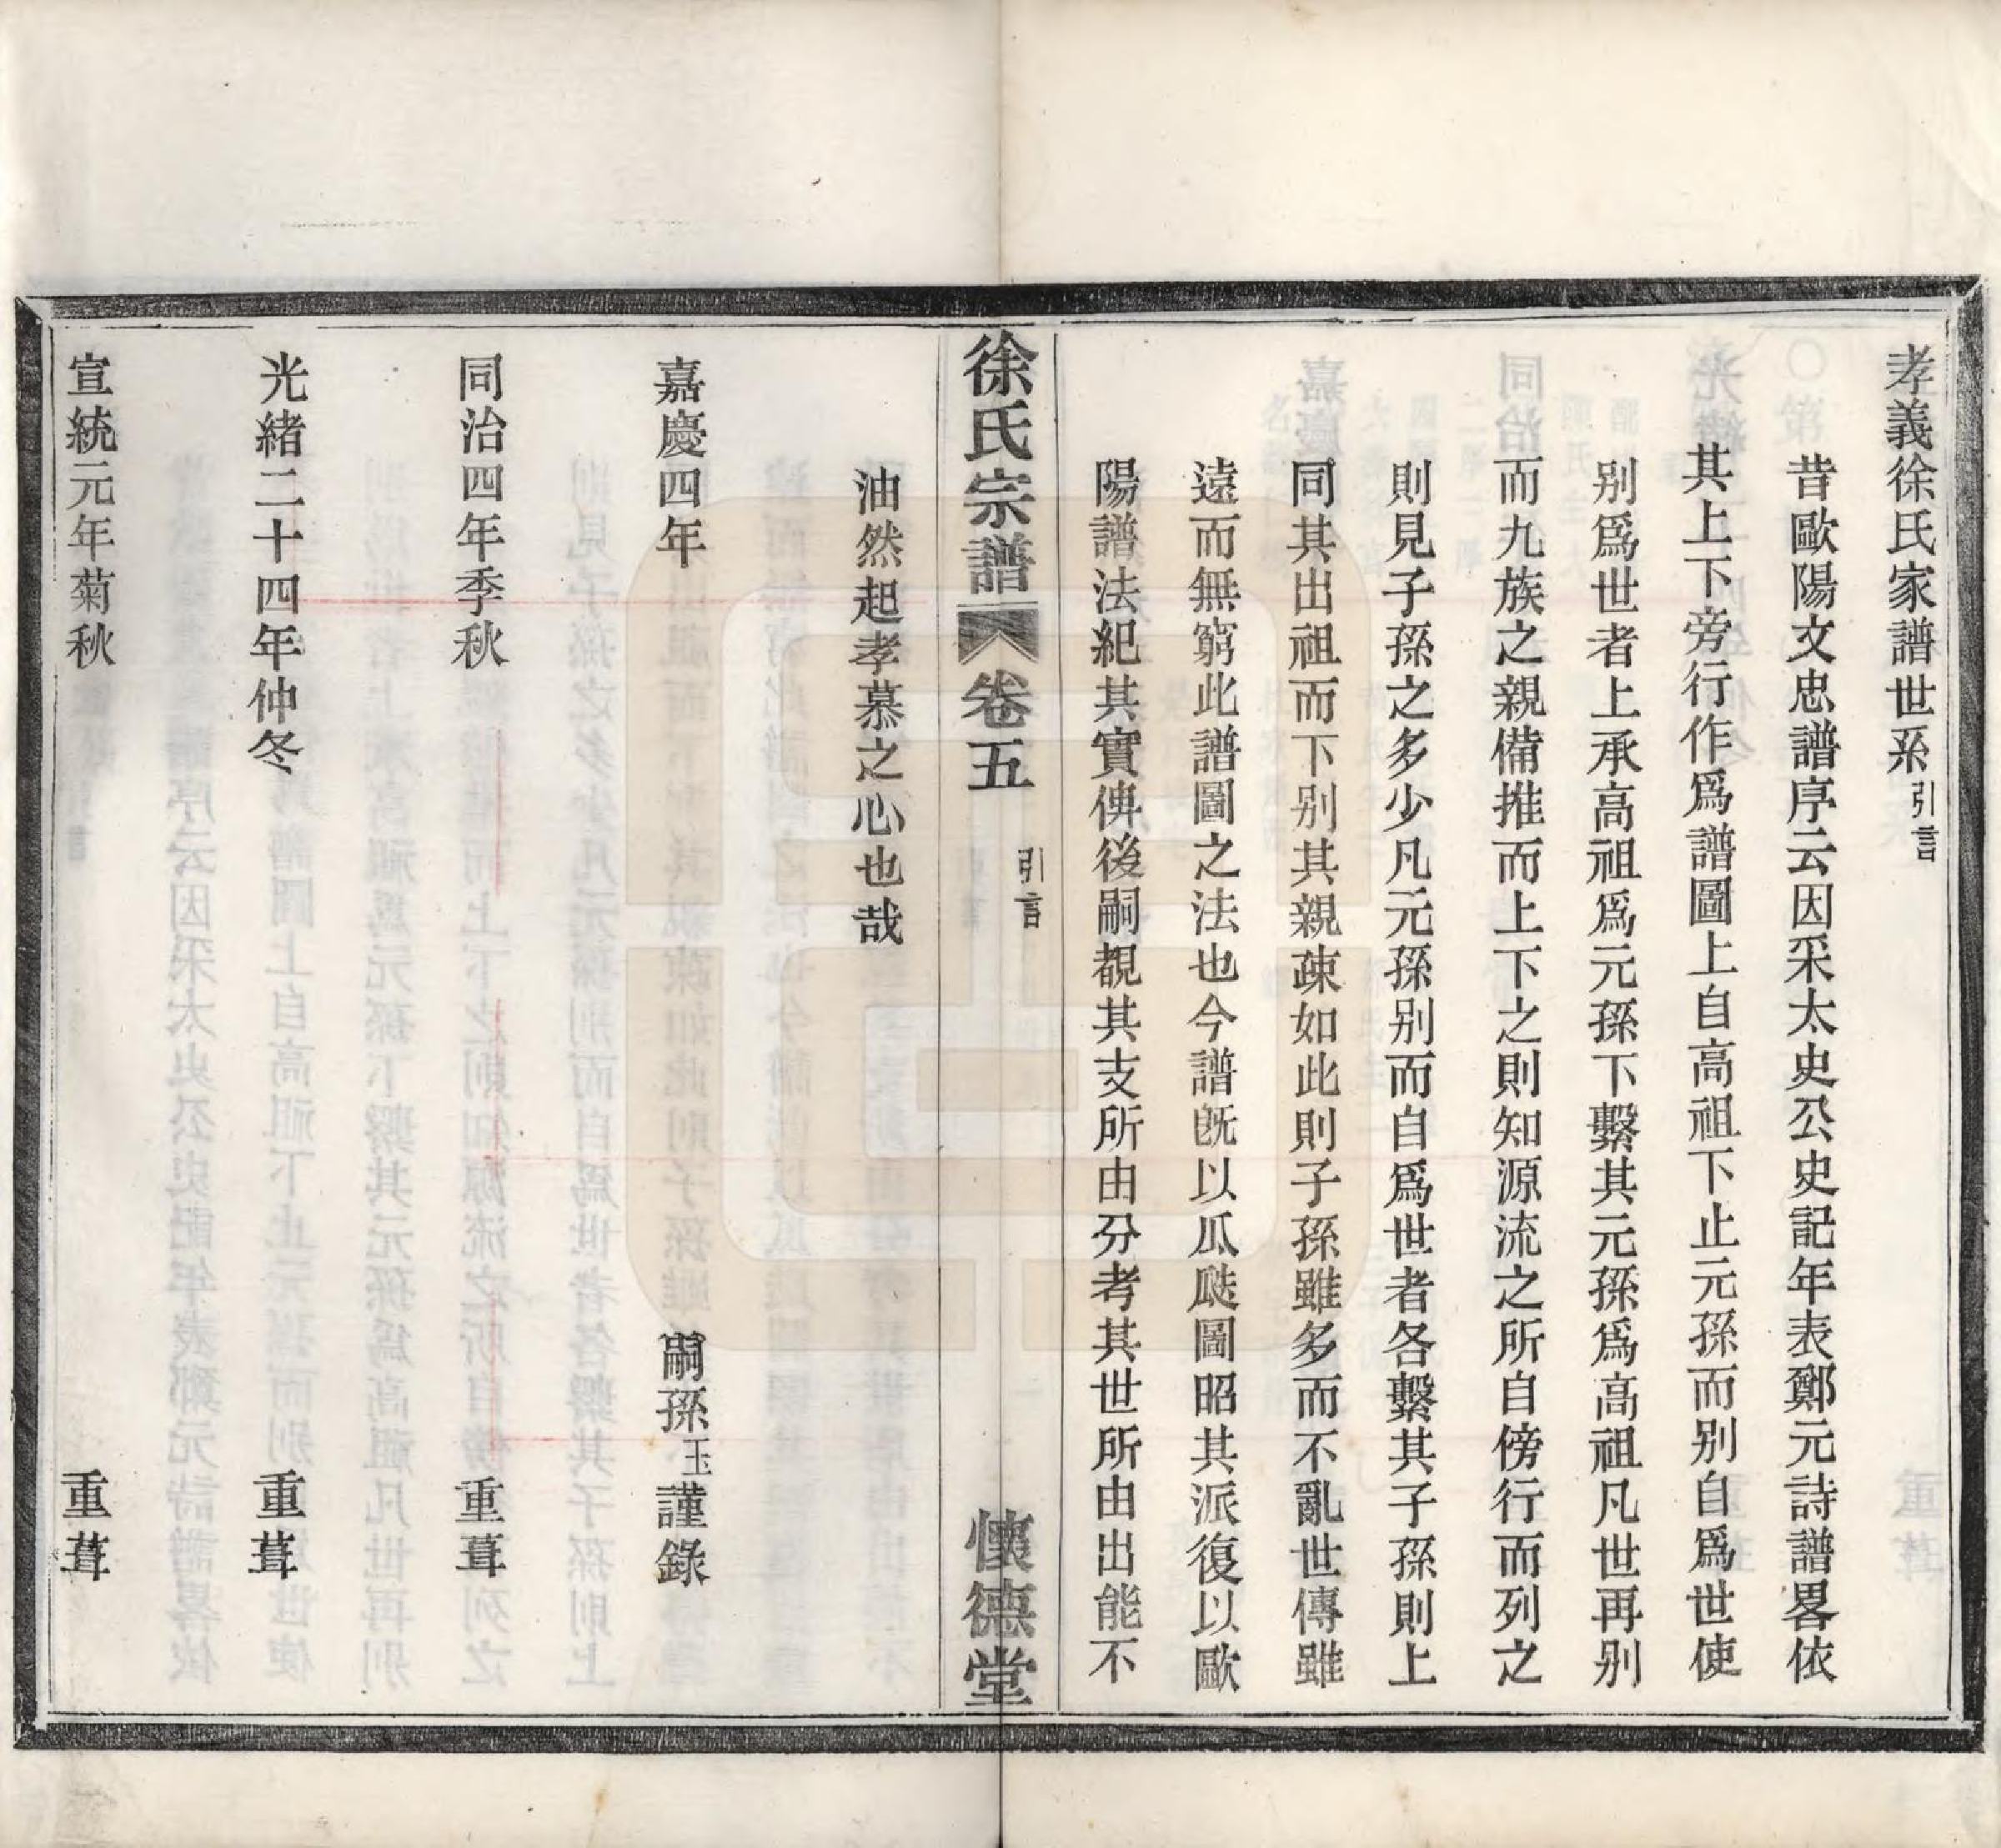 孝義徐氏家譜世系引言
昔歐陽文忠譜序云因采太史公史記年表鄭元詩譜畧依
其上下旁行作爲譜圖上自高祖下止元孫而别自爲世使
别爲世者上承高祖爲元孫下繫其元孫爲高祖凡世再别
而九族之親備推而上下之則知源流之所自傍行而列之
則見子孫之多少凡元孫别而自爲世者各繫其子孫則上
同其出祖而下别其親疎如此則子孫雖多而不亂世傳雖
遠而無窮此譜圖之法也今譜旣以瓜瓞圖昭其派復以歐
陽譜法紀其實俾後嗣覩其支所由分考其世所由出能不
徐氏宗譜
卷五
引言
懷德堂
油然起孝慕之心也哉
嘉慶四年 嗣孫玉謹錄
同治四年季秋 重葺
光緒二十四年仲冬 重葺
宣統元年菊秋 重葺